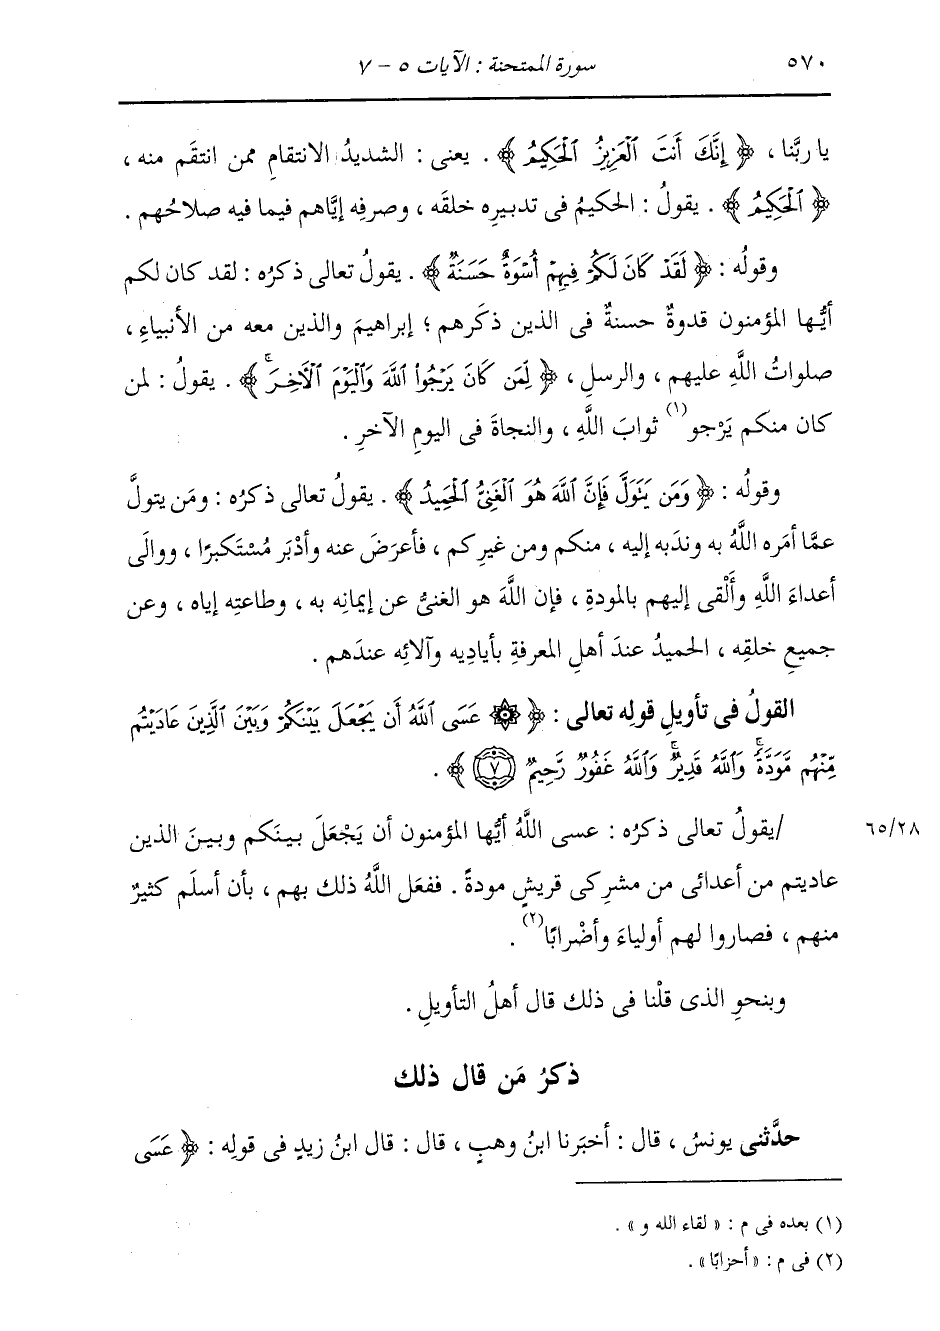 ٥٧٠ سورة الممتحنة : الآيات ٥ - ٧
يا ربَّنا ، ﴿ إِنَّكَ أَنتَ ٱلْعَزِيزُ ٱلْحَكِيمُ ﴾ . يعنى : الشديدُ الانتقامِ ممن انتقَم منه ،
﴿ ٱلْحَكِيمُ ﴾ . يقولُ : الحكيمُ فى تدبيرِه خلقَه ، وصرفِه إيَّاهم فيما فيه صلاحُهم .
وقولُه : ﴿ لَقَدْ كَانَ لَكُمْ فِيهِمْ أُسْوَةٌ حَسَنَةٌ ﴾ . يقولُ تعالى ذكرُه : لقد كان لكم
أيُّها المؤمنون قدوةٌ حسنةٌ فى الذين ذكَرهم ؛ إبراهيمَ والذين معه من الأنبياءِ ،
صلواتُ اللَّهِ عليهم ، والرسلِ ، ﴿ لِمَن كَانَ يَرْجُوا۟ ٱللَّهَ وَٱلْيَوْمَ ٱلْأَخِرَ ۚ ﴾ . يقولُ : لمن
كان منكم يَرْجو(١) ثوابَ اللَّهِ ، والنجاةَ فى اليومِ الآخرِ .
وقولُه : ﴿ وَمَن يَتَوَلَّ فَإِنَّ ٱللَّهَ هُوَ ٱلْغَنِىُّ ٱلْحَمِيدُ ﴾ . يقولُ تعالى ذكرُه : ومَن يتولَّ
عمَّا أمَره اللَّهُ به وندَبه إليه ، منكم ومن غيرِكم ، فأعرَضَ عنه وأدْبَر مُسْتَكبرًا ، ووالَى
أعداءَ اللَّهِ وأَلْقى إليهم بالمودةِ ، فإن اللَّهَ هو الغنىُّ عن إيمانِه به ، وطاعتِه إياه ، وعن
جميعِ خلقِه ، الحميدُ عندَ أهلِ المعرفةِ بأيادِيه وآلائِه عندَهم .
القولُ فى تأويلِ قولِه تعالى : ﴿ ۞ عَسَى ٱللَّهُ أَن يَجْعَلَ بَيْنَكُمْ وَبَيْنَ ٱلَّذِينَ عَادَيْتُم
مِّنْهُم مَّوَدَّةً ۚ وَٱللَّهُ قَدِيرٌ ۚ وَٱللَّهُ غَفُورٌ رَّحِيمٌ ٧ ﴾ .
٦٥/٢٨ /يقولُ تعالى ذكرُه : عسى اللَّهُ أيُّها المؤمنون أن يَجْعَلَ بينَكم وبينَ الذين
عاديتم من أعدائى من مشركى قريشٍ مودةً . ففعَل اللَّهُ ذلك بهم ، بأن أسلَم كثيرٌ
منهم ، فصاروا لهم أولياءَ وأضْرابًا(٢) .
وبنحوِ الذى قلْنا فى ذلك قال أهلُ التأويلِ .
ذكرُ مَن قال ذلك
حدَّثنى يونسُ ، قال : أخبَرنا ابنُ وهبٍ ، قال : قال ابنُ زيدٍ فى قولِه : ﴿ عَسَى
(١) بعده فى م : « لقاء الله و » .
(٢) فى م : « أحزابًا » .